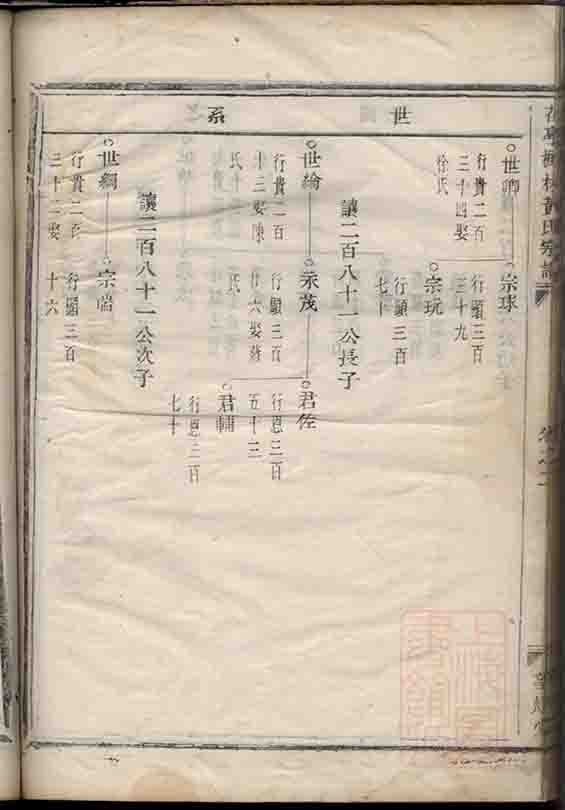 世系
世卿
行貴二百
三十四娶
徐氏
宗球
行顯三百
三十九
宗玩
行顯三百
七十
讓二百八十一公長子
世綸
行貴二百
十三娶陳
氏
永茂
行顯三百
廿六娶蔣
氏
君佐
行恩三百
五十三
君輔
行恩三百
七十
讓二百八十一公次子
世綱
行貴二百
三十二娶
宗耑
行顯三百
十六
黃氏宗譜
卷之二
上海圖書館藏